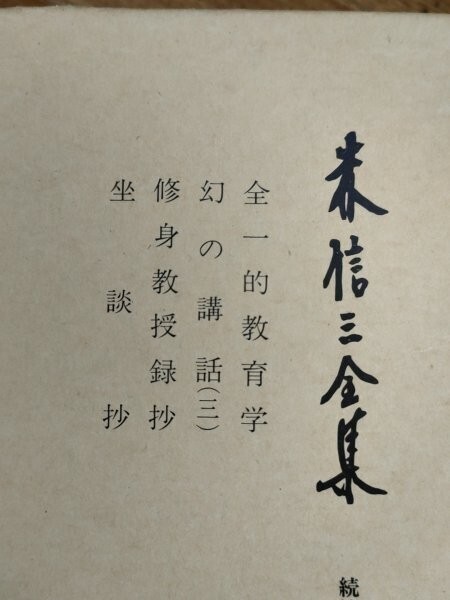 森信三全集
続
全一的教育学
幻の講話(三)
修身教授録抄
坐談抄